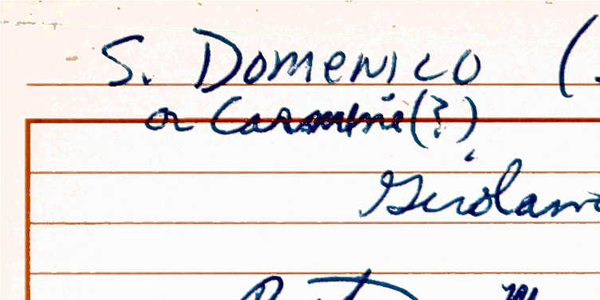 S. Domenico (
or Carmine(?)
Girolamo